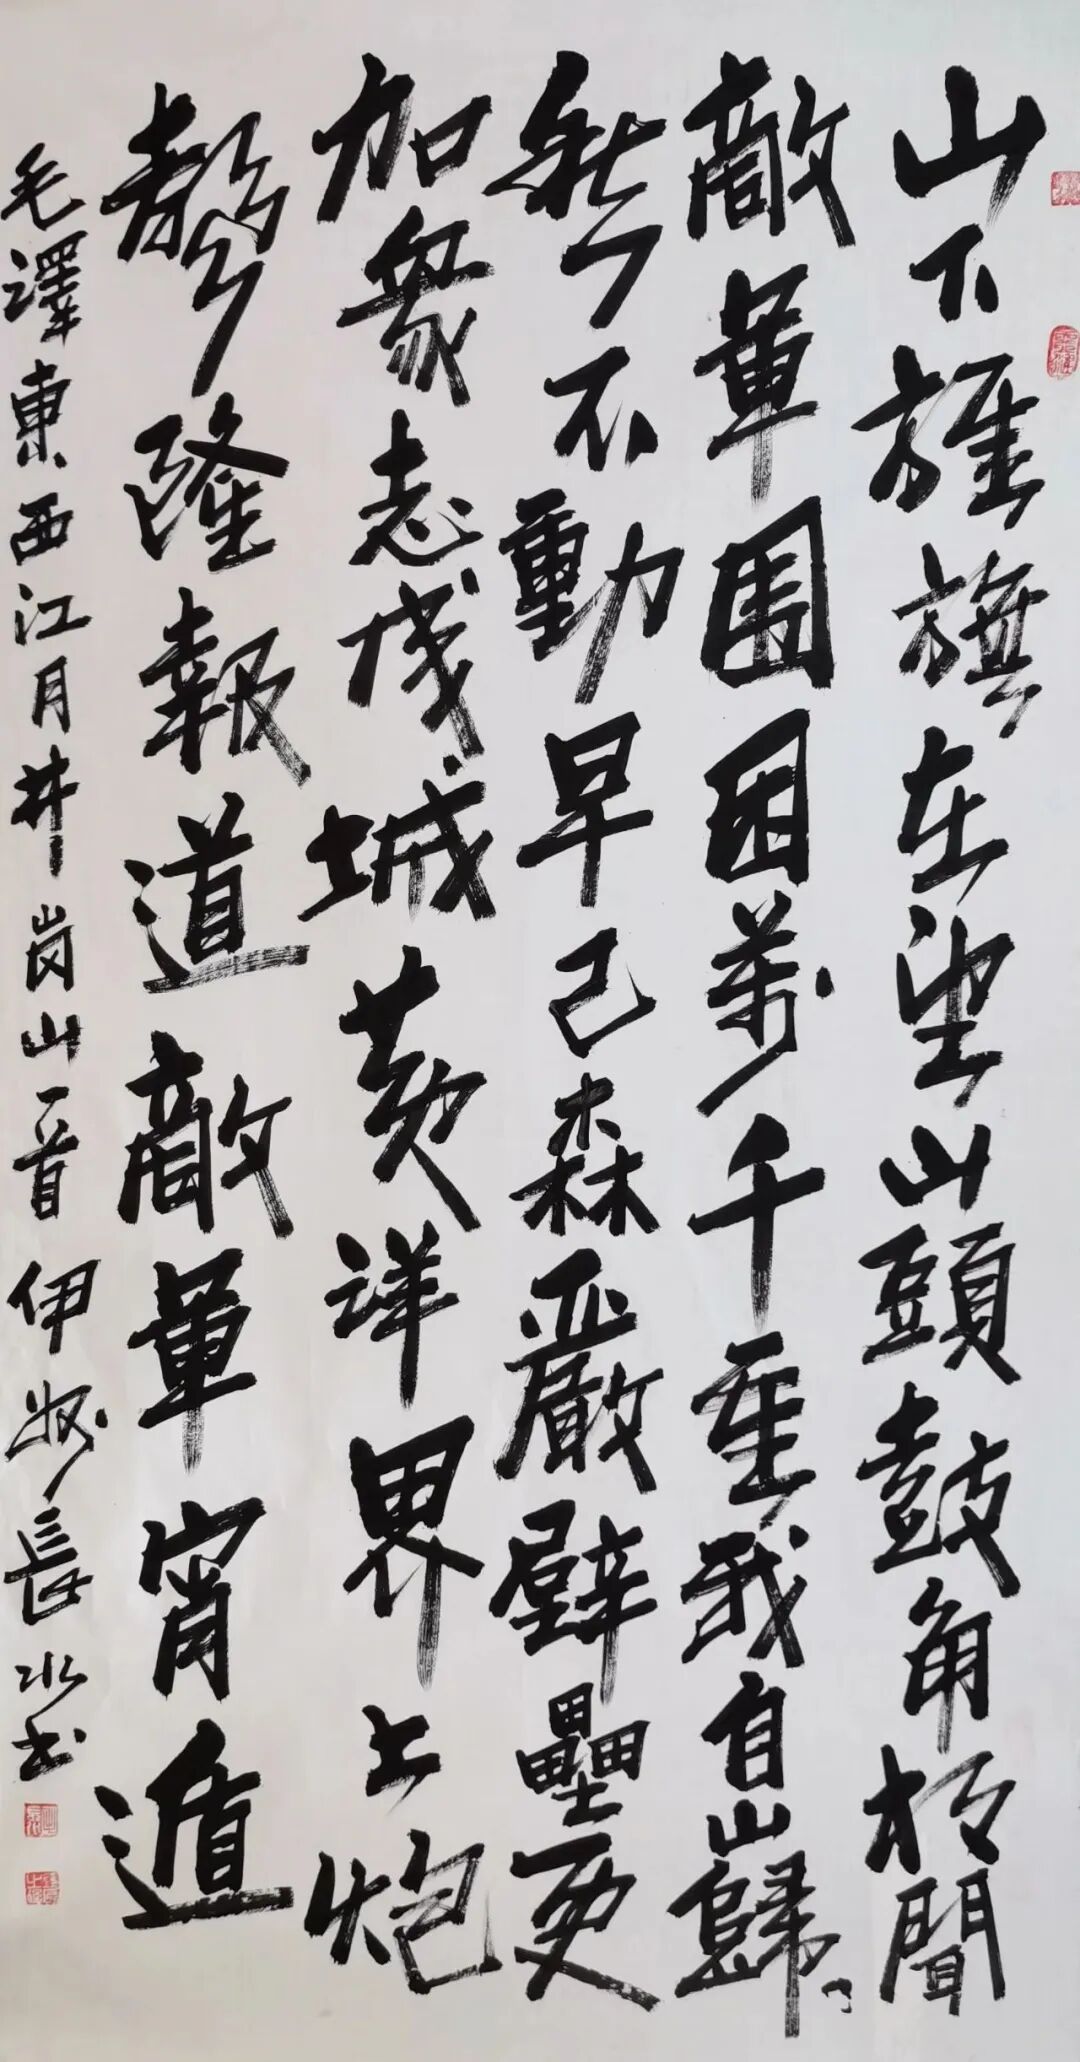 山下旌旗在望山頭鼓角相聞
敵軍圍困萬千重我自巋
然不動早已森嚴壁壘更
加衆志成城黄洋界上炮
聲隆報道敵軍宵遁
毛澤東西江月井岗山一首 伊長水书